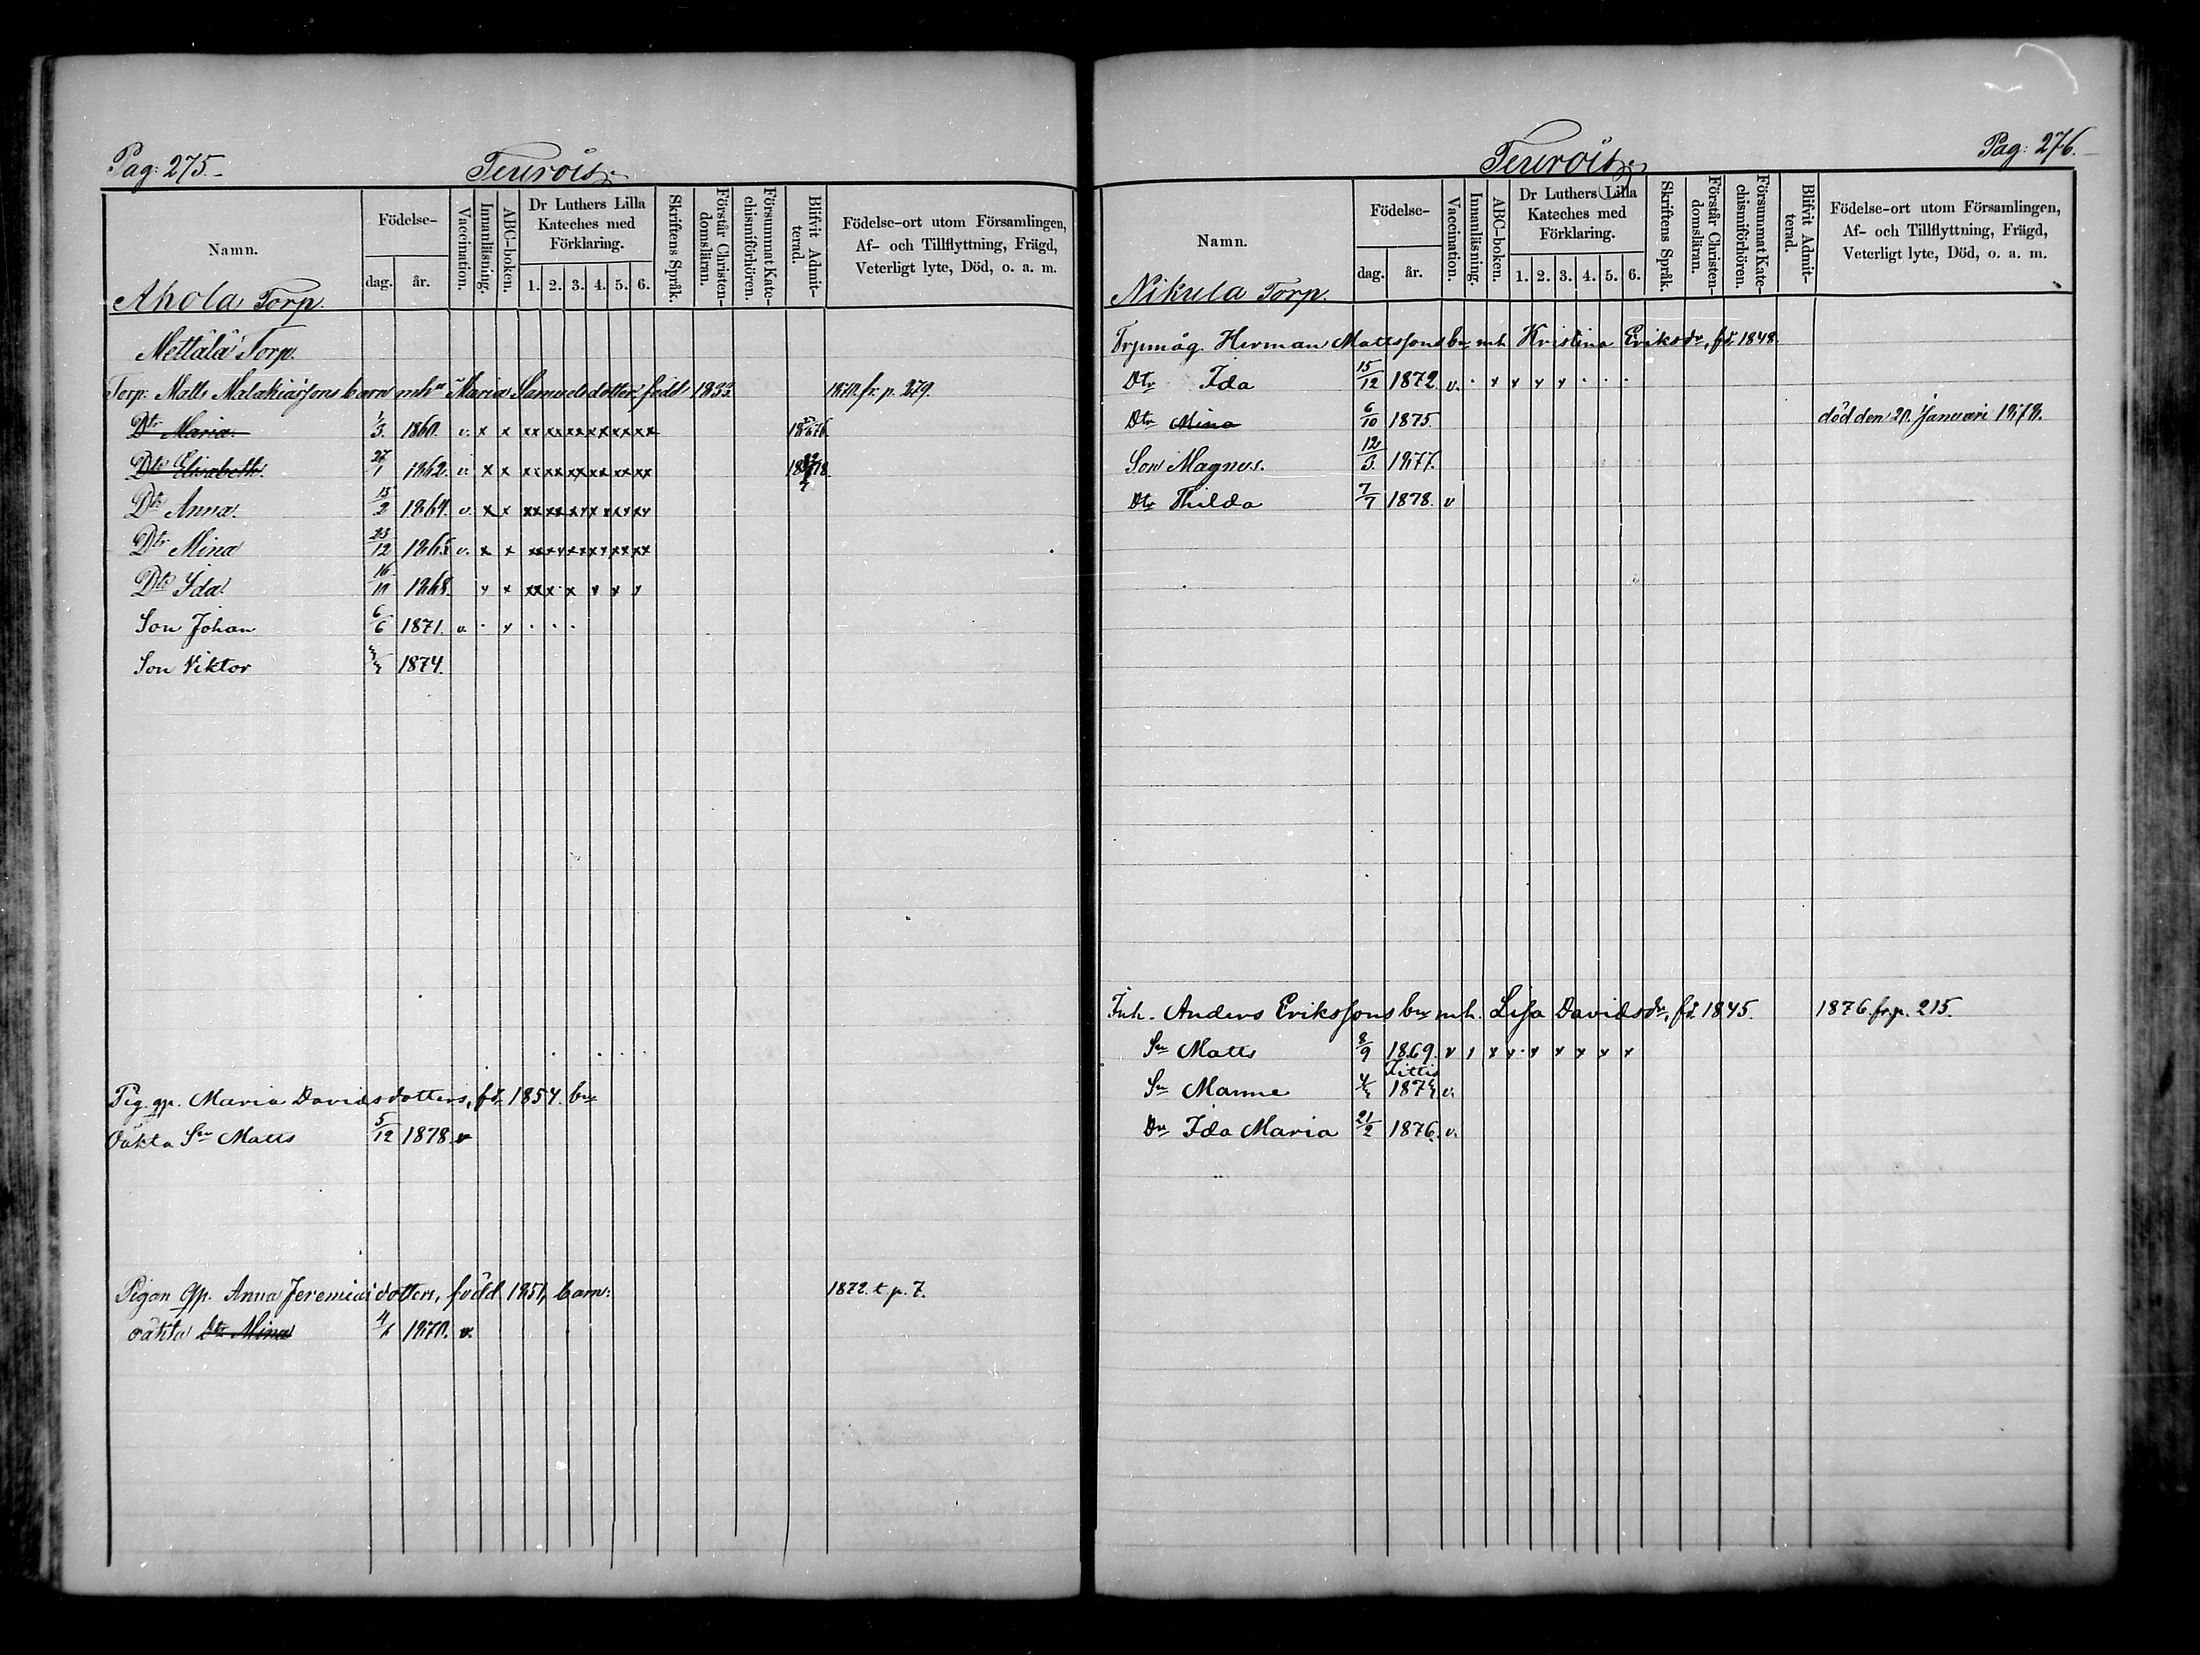 Pag: 275.
Teurois
Namn.
Födelse-
dag.
år.
Vaccination.
Innanläsning.
ABC-boken.
Dr Luthers Lilla
Kateches med
Förklaring.
1. 2. 3. 4. 5. 6.
Skriftens Språk.
Förstår Christen-
domsläran.
Försummat Kate-
chismiförhören.
Blifvit Admit-
terad.
Födelse-ort utom Församlingen,
Af- och Tillflyttning, Frägd,
Veterligt lyte, Död, o. a. m.
Ahola Torp.
Mettälä Torp.
Torp. Matts Malakiassons barn mh Maria Samuelsdotter född 1833. 1870. fr. p. 279.
Dtr Maria. 1/3. 1860. v. x x xx xx xx xx xx xx
Dtr Elisabeth. 27/1 1862. v. x x xx xx xx xx xx xx
Dtr Anna. 15/2 1864. v. x x xx xx xx xx xx xx
Dtr Mina 23/12 1865 v. x x xx xx xx xx xx xx
Dtr Ida. 1868. x x xx x x x x x
Son Johan 6/6 1871. v. . x . . .
Son Viktor 1874.
Pig. gp. Maria Davidsdotters, fd. 1854. bn
Oäkta Sn Matts 5/12 1878 v
Pigan gp. Anna Jeremiasdotters, född 1851, barn: 1872. t. p. 7.
oäkta Dtr Mina 1870. v.
Pag: 276.
Teurois
Namn.
Födelse-
dag.
år.
Vaccination.
Innanläsning.
ABC-boken.
Dr Luthers Lilla
Kateches med
Förklaring.
1. 2. 3. 4. 5. 6.
Skriftens Språk.
Förstår Christen-
domsläran.
Försummat Kate-
chismiförhören.
Blifvit Admit-
terad.
Födelse-ort utom Församlingen,
Af- och Tillflyttning, Frägd,
Veterligt lyte, Död, o. a. m.
Nikula Torp.
Trpmåg Herman Mattssons bn mh. Kristina Eriksdr, fd. 1848.
Dtr Ida 15/12 1872 v. . x x x x . . .
Dtr Mina 6/10 1875. död den 20. Januari 1878.
Son Magnus. 12/3. 1877.
Dtr Thilda 7/7 1878. v
Inh. Anders Erikssons bn mh. Lisa Davidsdr, fd. 1845. 1876. fr p. 215.
Sn Matts 8/9 1869. v x x x x x x x
Sn Manne v.
Dr Ida Maria 21/2 1876. v.